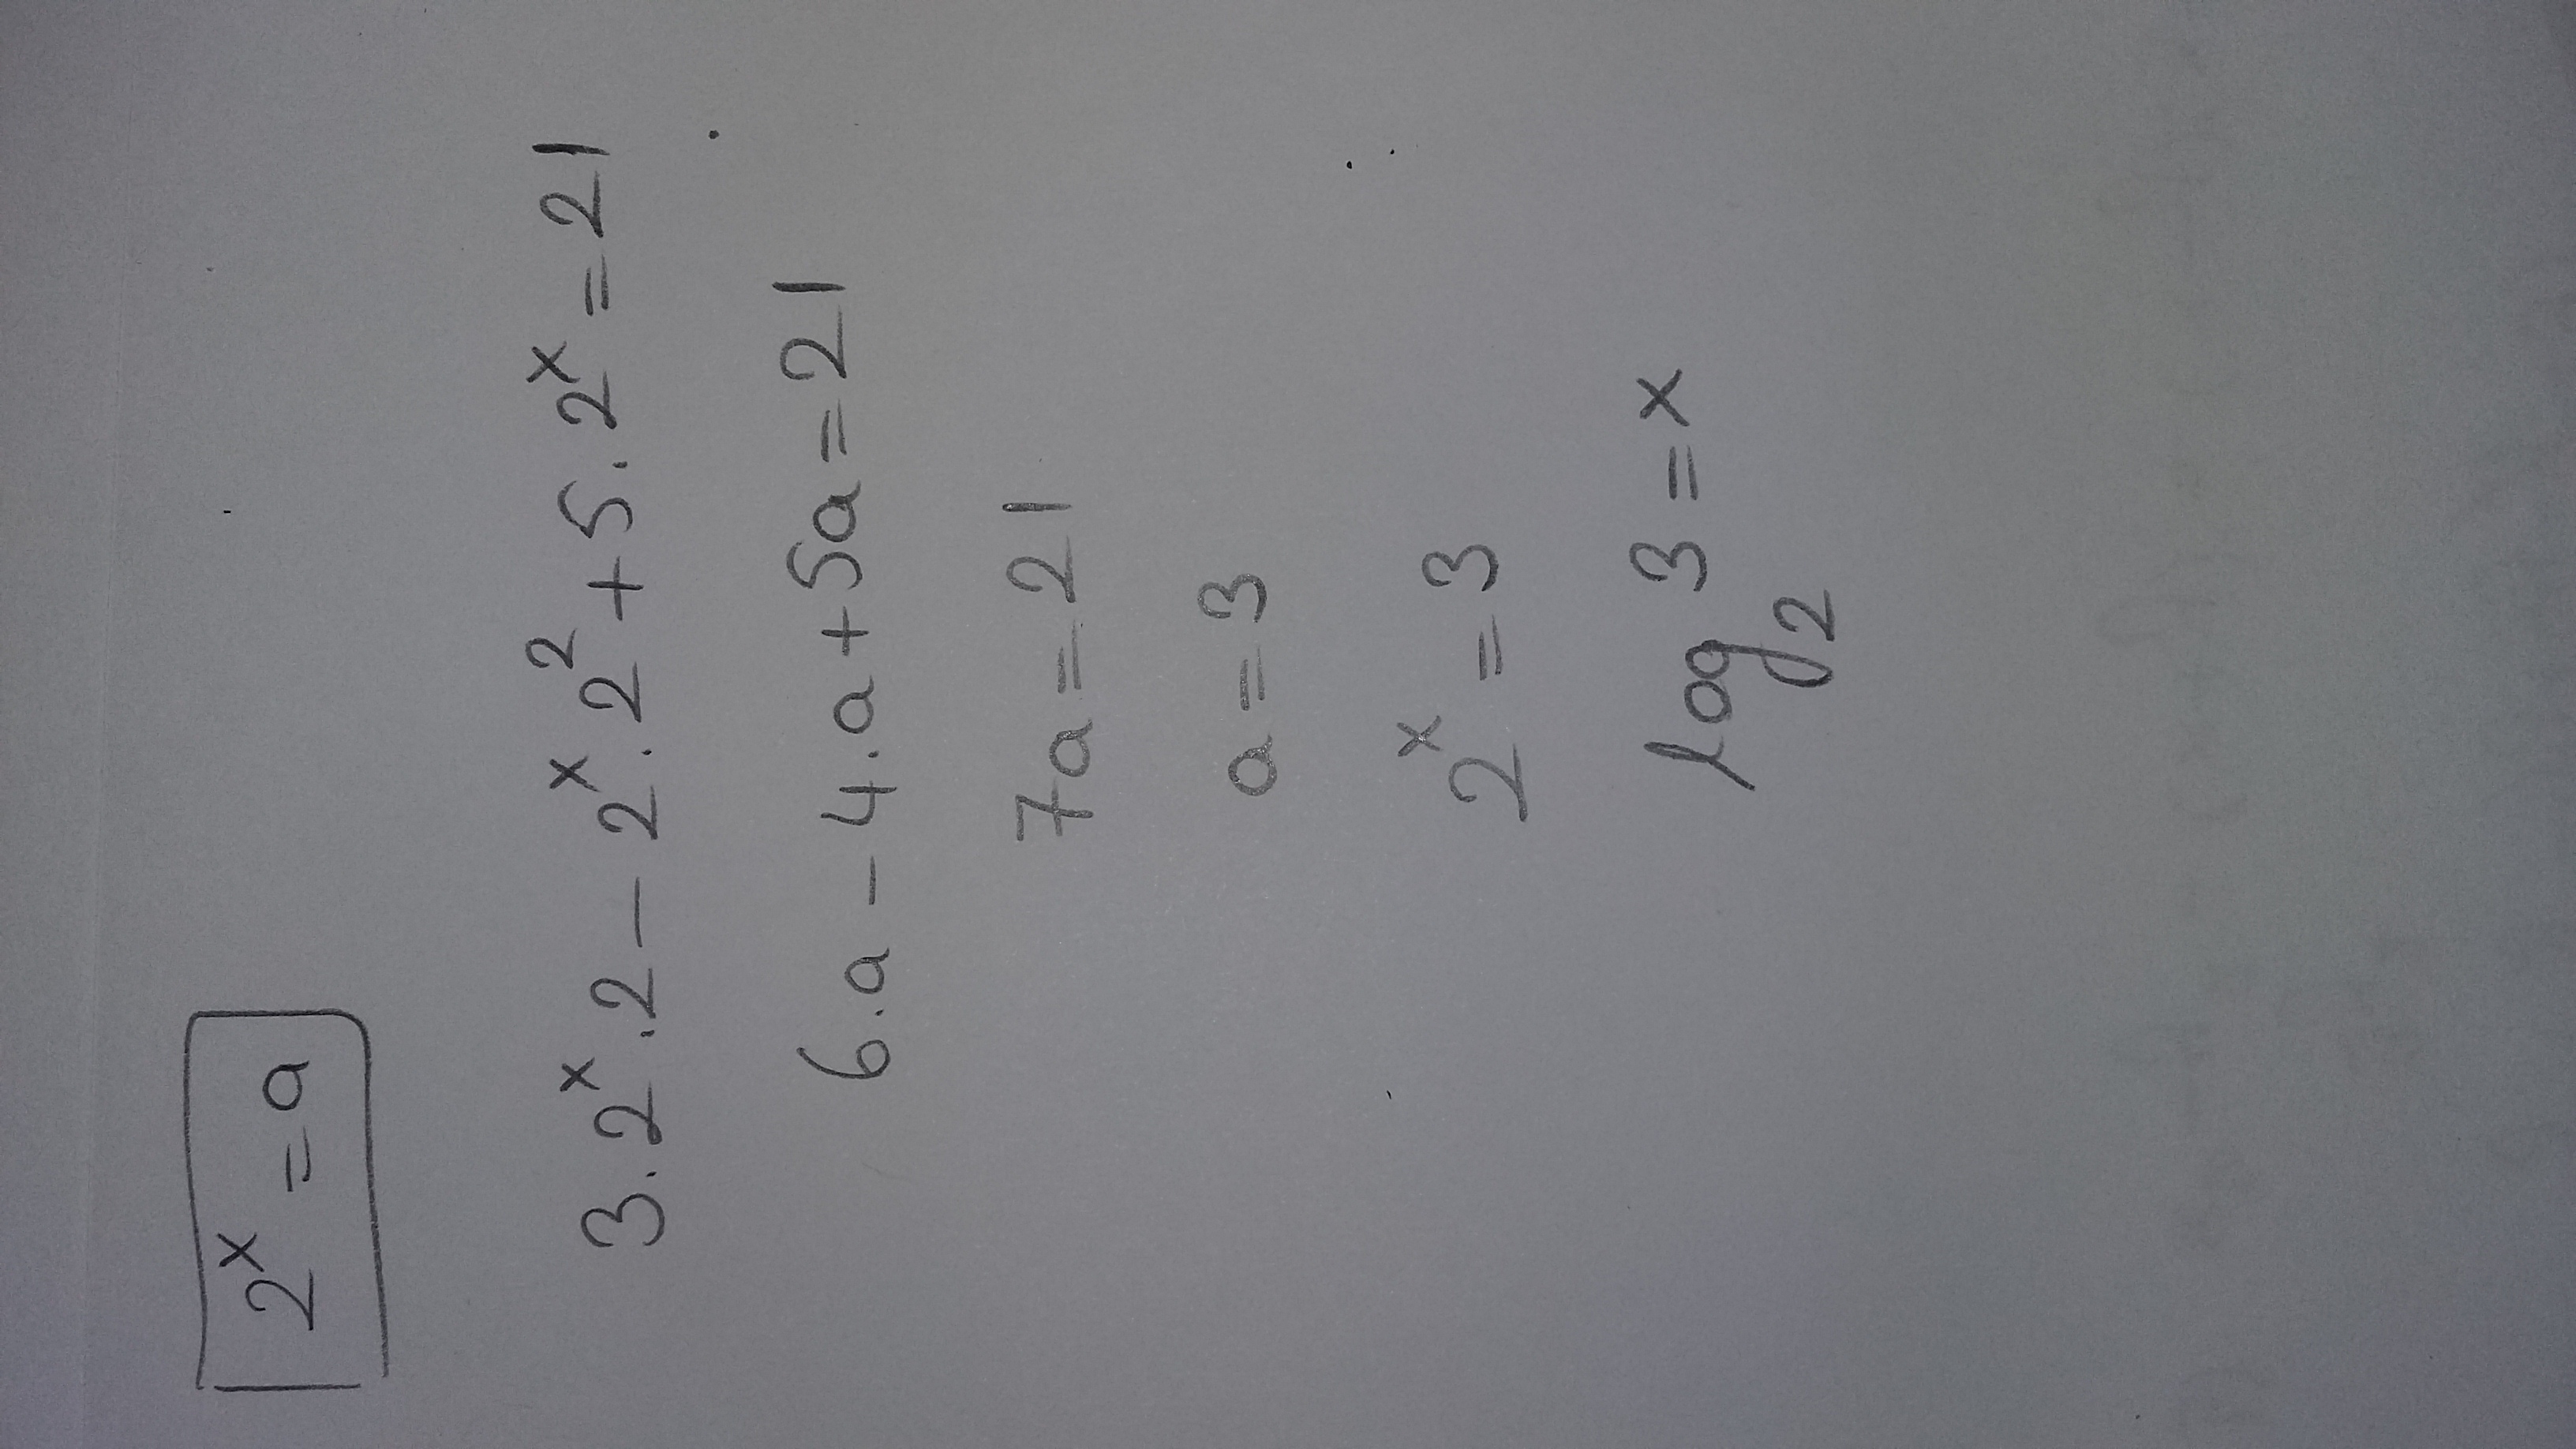 2ˣ = a
3.2ˣ.2 - 2ˣ.2² + 5.2ˣ = 21
6.a - 4.a + 5a = 21
7a = 21
a = 3
2ˣ = 3
log₂ 3 = x